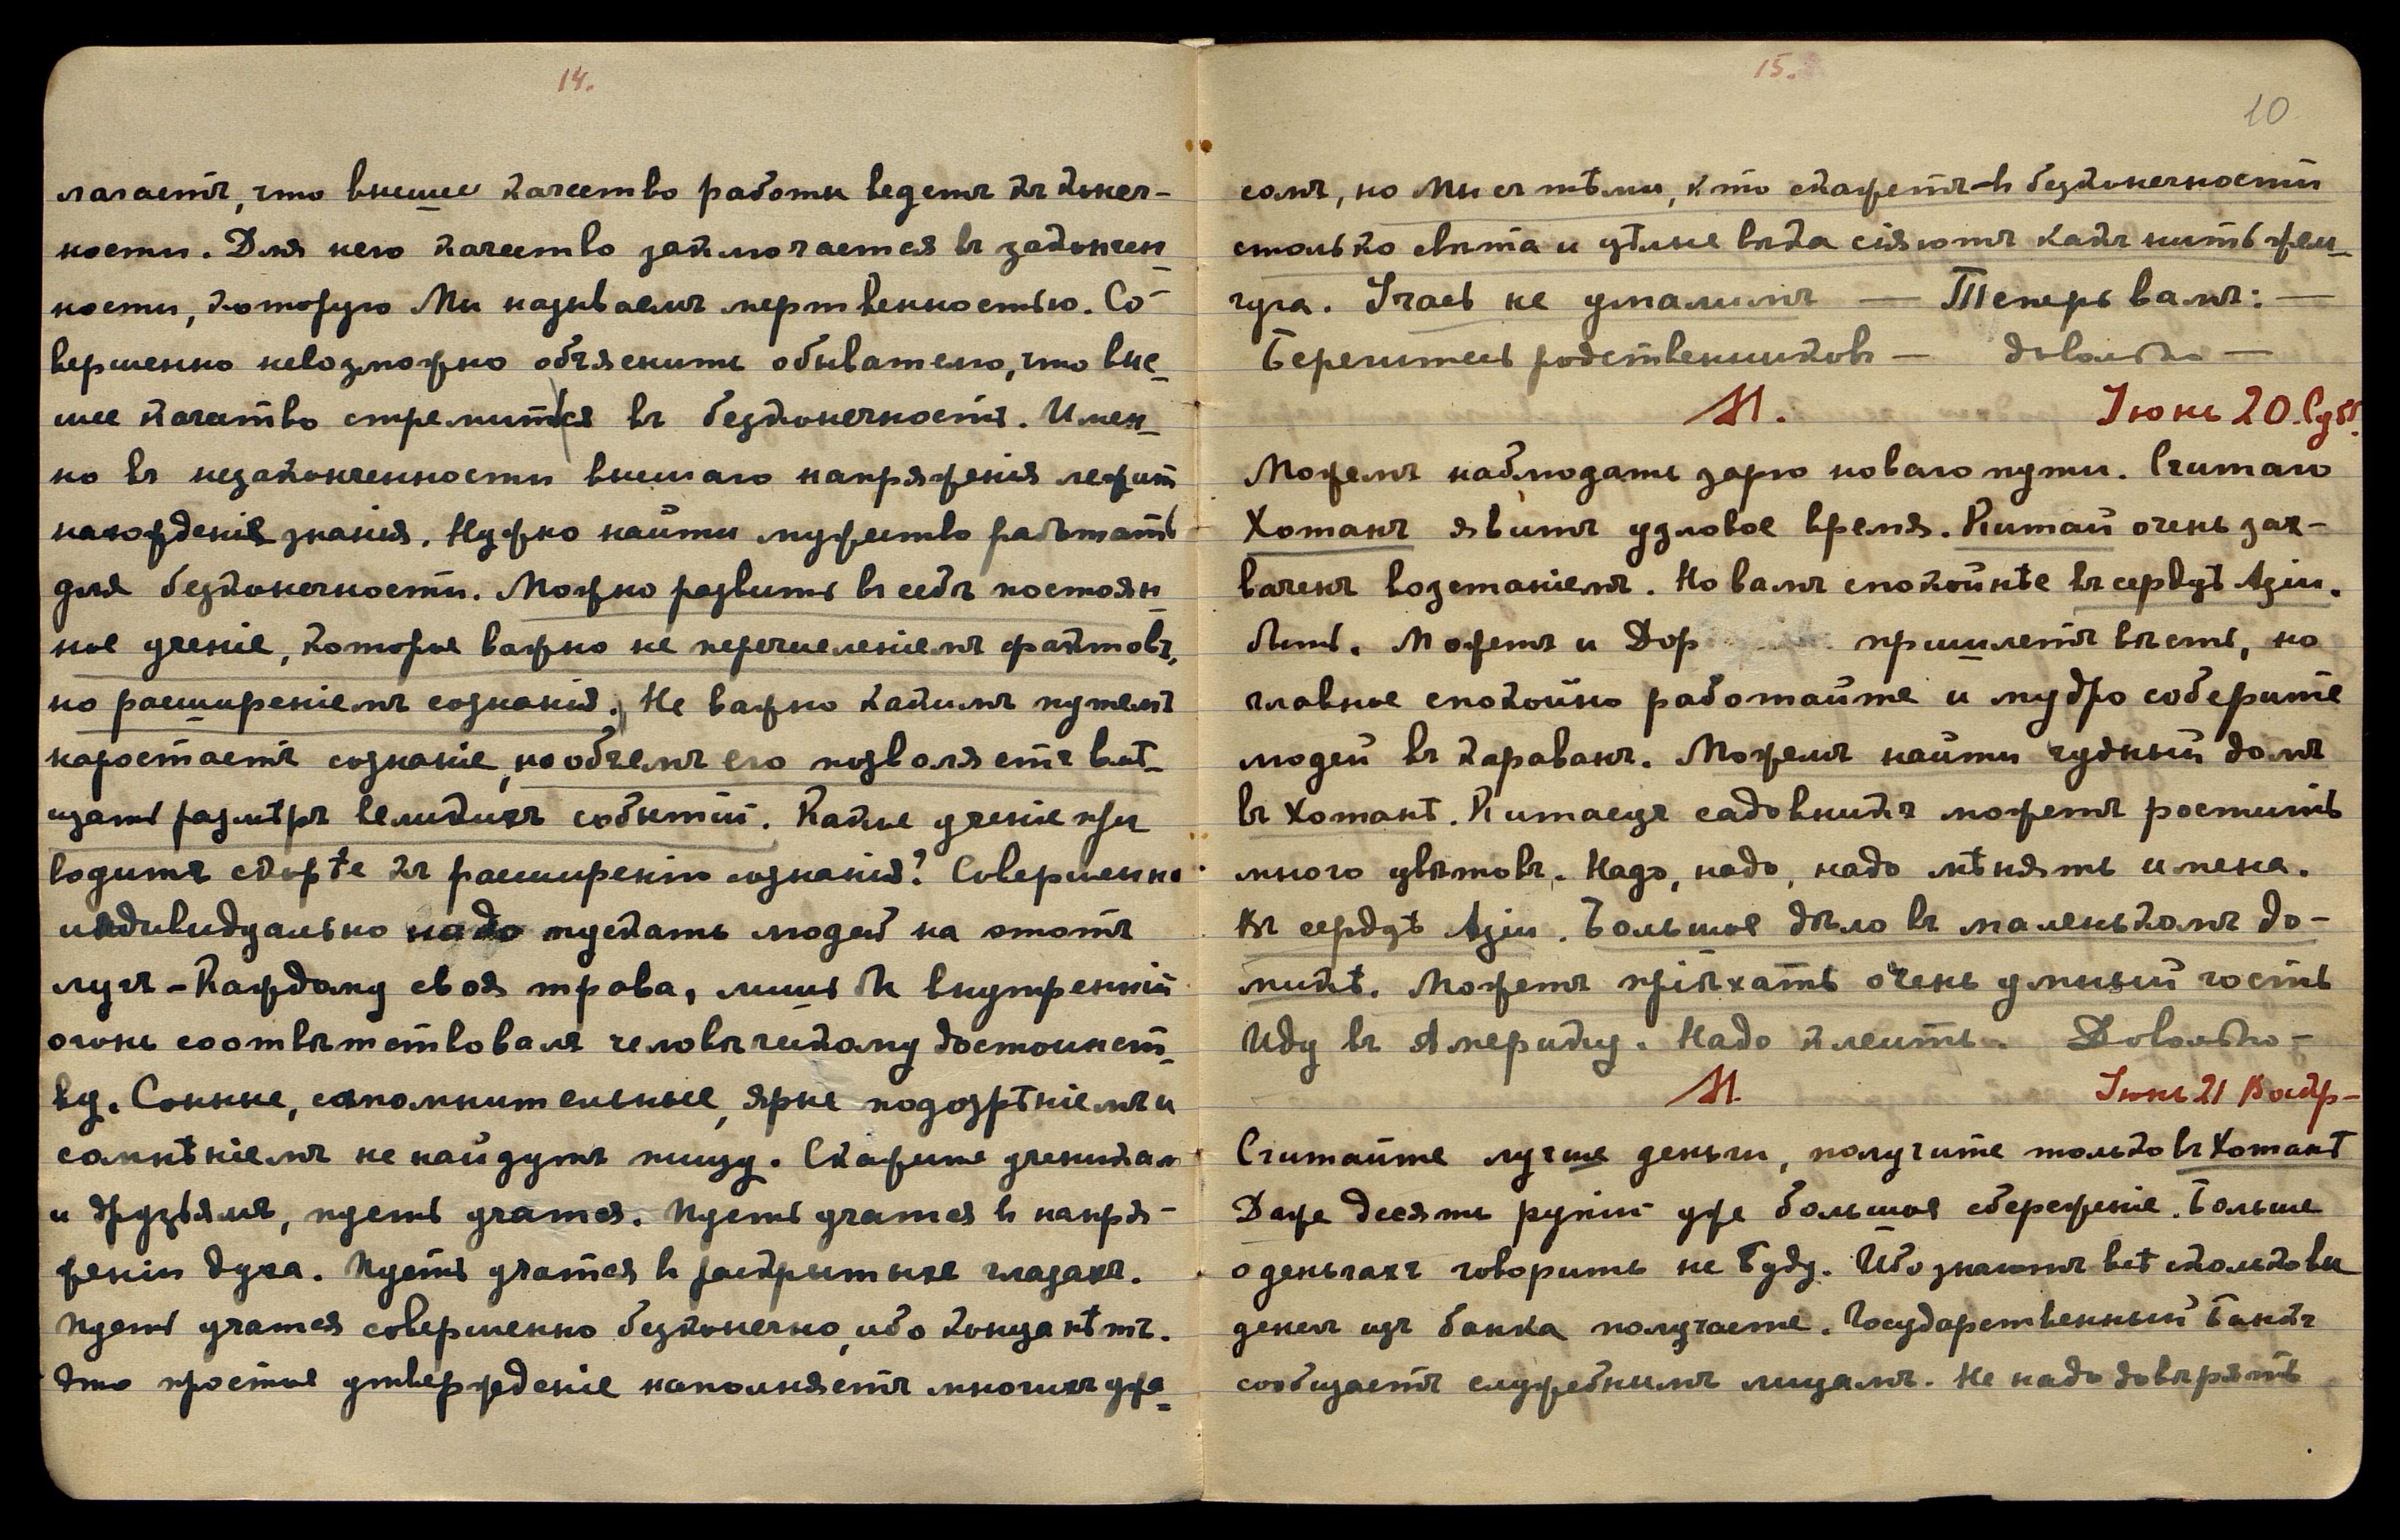 14.
лагаетъ, что высшее качество работы ведетъ къ конеч-
ности. Для него качество заключается въ закончен-
ности, которую Мы называемъ мертвенностью. Со-
вершенно невозможно объяснить обывателю, что выс-
шее качество стремится въ безконечность. Имен-
но въ незаконченности высшаго напряженія лежит
нахожденіе знанія. Нужно найти мужество работать
для безконечности. Можно развить въ себѣ постоян-
ное ученіе, которое важно не перечисленіемъ фактовъ,
но расширеніемъ сознанія. Не важно какимъ путемъ
наростаетъ сознаніе, но объемъ его позволяетъ вмѣ-
щать размѣръ великихъ событій. Какое ученіе при
водитъ скорѣе къ расширенію сознанія? Совершенно
индивидуально надо пускать людей на этотъ
лугъ - Каждому своя трава, лишь бы внутренній
огонь соотвѣтствовалъ человѣческому достоинст-
ву. Сонные, сомнительные, ярые подозрѣніемъ и
саммнѣніемъ не найдутъ пищу. Скажите ученикам
и друзьямъ, пусть учатся. Пусть учатся в напря-
женіи духа. Пусть учатся в раскрытыхъ глазахъ.
Пусть учатся совершенно безконечно, ибо конца нѣтъ.
Это простое утвержденіе наполняетъ многихъ ужа-
15.
10
сомъ, но Мы съ тѣми, кто скажетъ - въ безконечности
столько свѣта и цѣлые вѣка сіяютъ какъ нить жем-
чуга. Учась не умалимъ — Теперь вамъ: —
Берегитесь родственниковъ — довольно —
М. Іюнь 20. Суб.
Можемъ наблюдать зарю новаго пути. Считаю
Хотанъ явитъ узловое время. Китай очень зах-
ваченъ возстаніемъ. Но вамъ спокойнѣе въ сердцѣ Азіи.
быть. Можетъ и Дор пришлетъ вѣсть, но
главное спокойно работайте и мудро соберите
людей въ караванъ. Можемъ найти чудный домъ
въ Хотанѣ. Китаецъ садовникъ можетъ ростить
много цвѣтовъ. Надо, надо, надо мѣнять имена.
въ сердцѣ Азіи. Большое дѣло въ маленькомъ до-
микѣ. Можетъ пріѣхать очень умный гость
Иду въ Америку. Надо клеить. Довольно —
М. Іюнь 21 Воскр-
Считайте лучше деньги, получите только въ Хотанѣ
Даже десять рупій уже большое сбереженіе. Больше
о деньгахъ говорить не буду. Ибо знаютъ всѣ сколько вы
денегъ изъ банка получаете. Государственный банкъ
сообщаетъ служебнымъ лицамъ. Не надо довѣрять